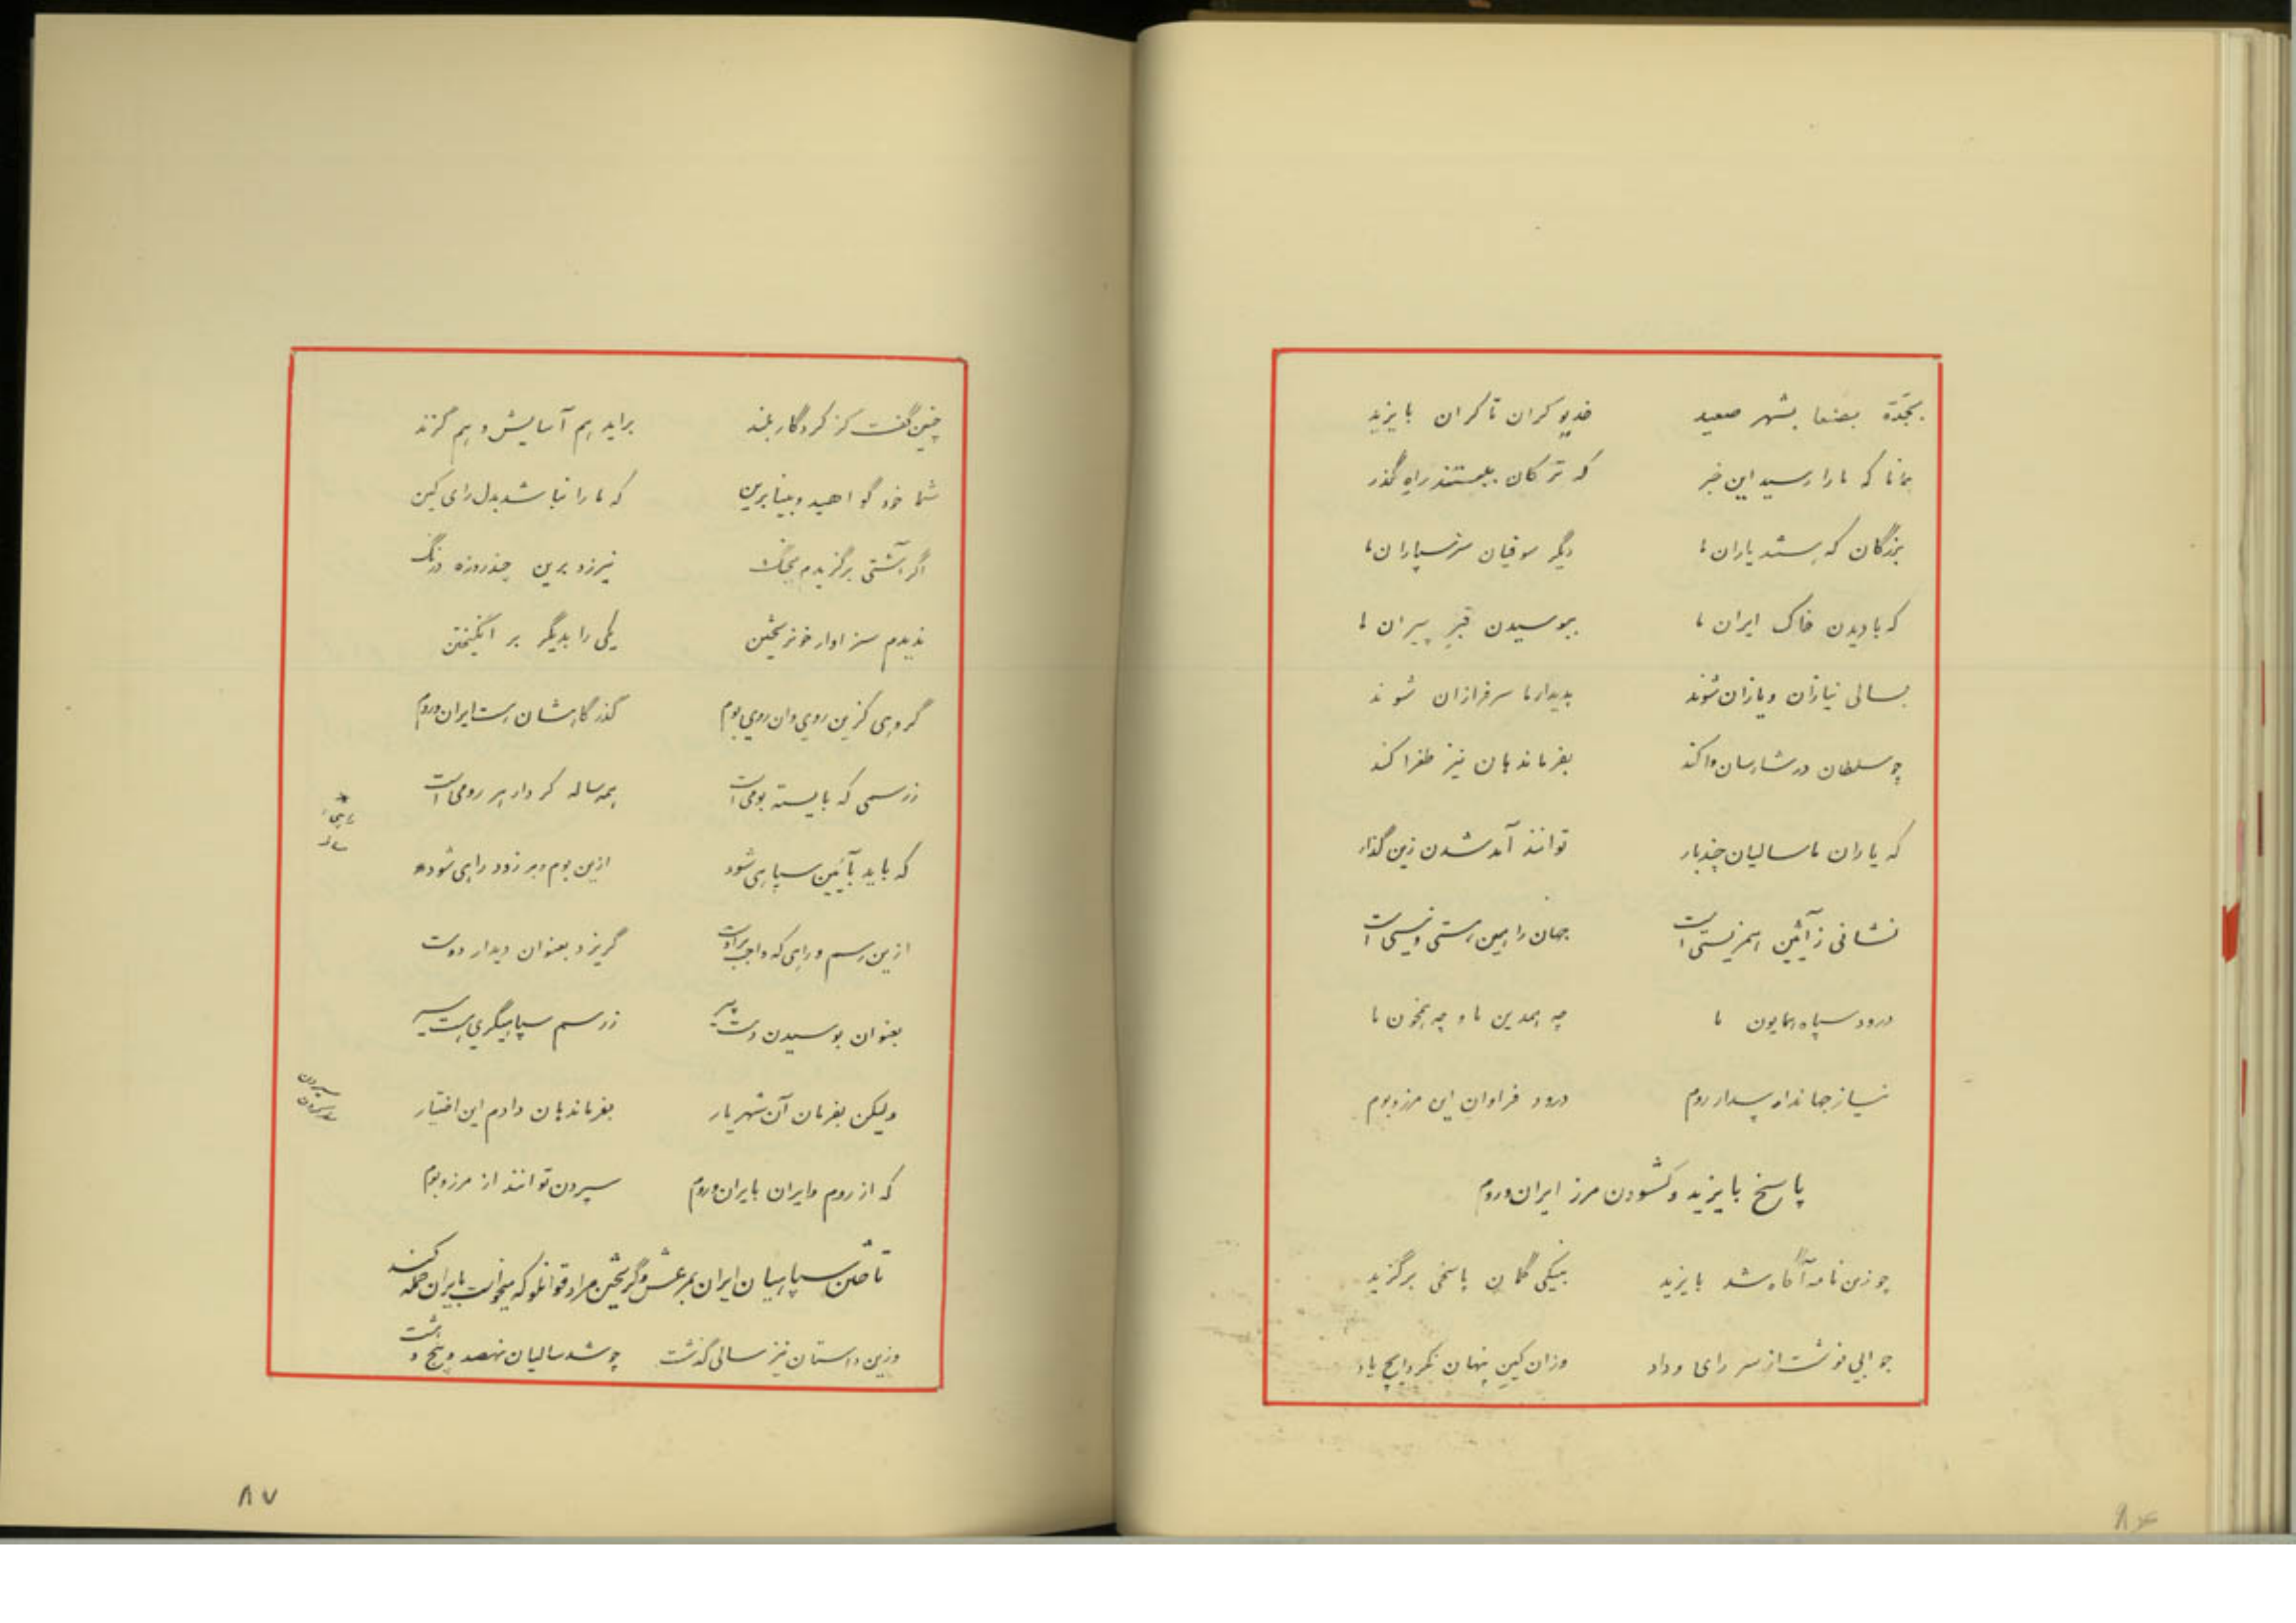 بجدّة بصنعا بشهر صعید خدیو کران تا کران بایزید
همانا که ما را رسید این خبر که ترکان ببستند راه گذر
بزرگان که هستند یاران ما دیگر صوفیان سرسپاران ما
که با دیدن خاک ایران ما ببوسیدن قبر پیران ما
بسالی نیازان و یازان شوند بدیدار ما سرفرازان شوند
چو سلطان در شارسان وا کند بفرماندهان نیز طغرا کند
که یاران ما سالیان چند بار توانند آمد شدن زین گذار
نشانی ز آئین همزیستی است جهان را همین هستی و نیستی است
درود سپاه همایون ما چه همدین ما و چه همخون ما
نیاز جهاندار سپدار روم درود فراوان این مرز و بوم
پاسخ بایزید و گشودن مرز ایران و روم
چو زین نامه آگاه شد بایزید بنیکی گمان پاسخی برگزید
جوابی نوشت از سر رای و داد وزان کین پنهان نکرد ایچ یاد
چنین گفت کز کردگار بلند براید هم آسایش و هم گزند
شما خود گواهید و بینا برین که ما را نباشد بدل رای کین
اگر آشتی برگزیدم بجنگ نیرزد برین چند روزه درنگ
ندیدم سزاوار خون ریختن یکی را بدیگر بر انگیختن
گروهی کزین روی وان روی بوم گذرگاهشان هست ایران و روم
ز رسمی که بایسته بومی است همه ساله کردار هر رومی است
که باید بآئین سپاهی شود ازین بوم و بر زود راهی شود*
ازین رسم و راهی که واجب براوست گریزد بعنوان دیدار دوست
بعنوان بوسیدن دست پیر ز رسم سپاهیگری هست سیر
ولیکن بفرمان آن شهریار بفرماندهان دادم این اختیار
که از روم و ایران بایران و روم سپردن توانند از مرز و بوم
تاختن سپاهیان ایران بمرعش و گریختن مراد قوانلو که میخواست بایران حمله کند
وزین داستان نیز سالی گذشت چو شد سالیان نهصد و پنج و هشت
۸۷